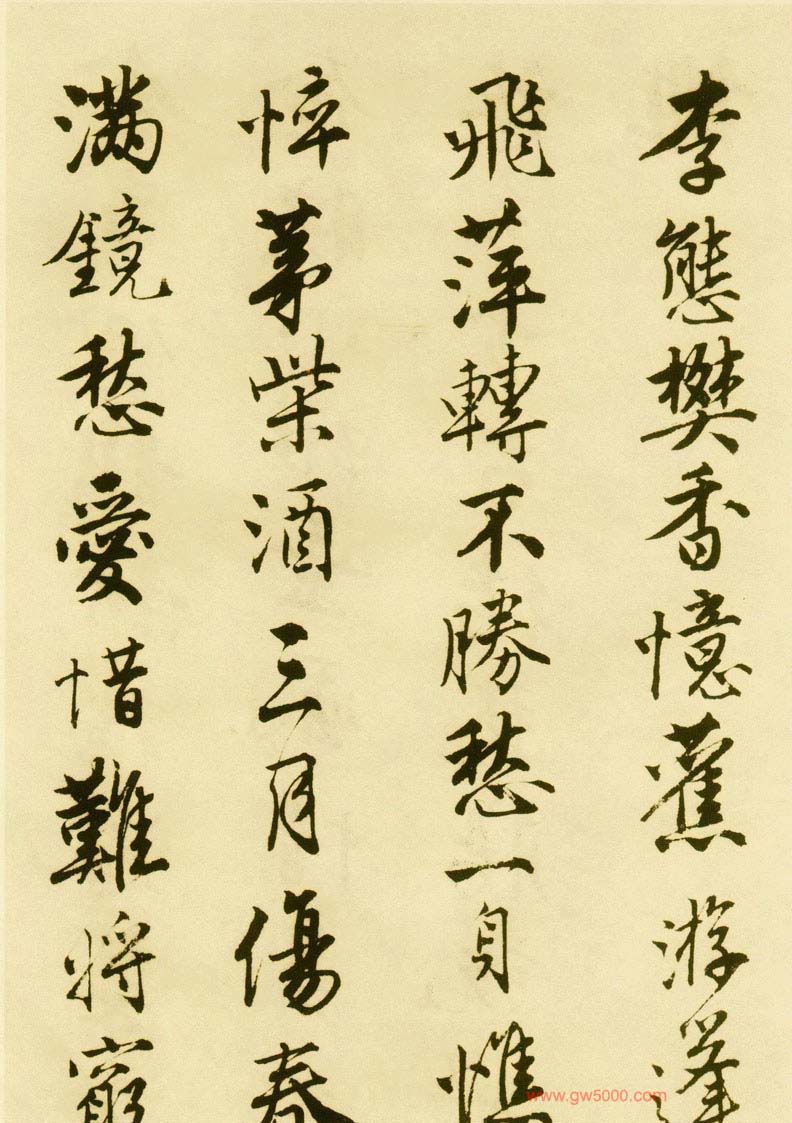 李態樊香憶舊游蓬
飛萍轉不勝愁一身憔
悴茅柴酒三月傷春
滿鏡愁愛惜難將窮
www.gw5000.com